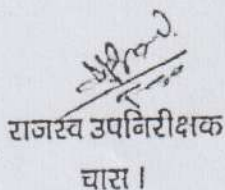 राजस्व उपनिरीक्षक
चास।